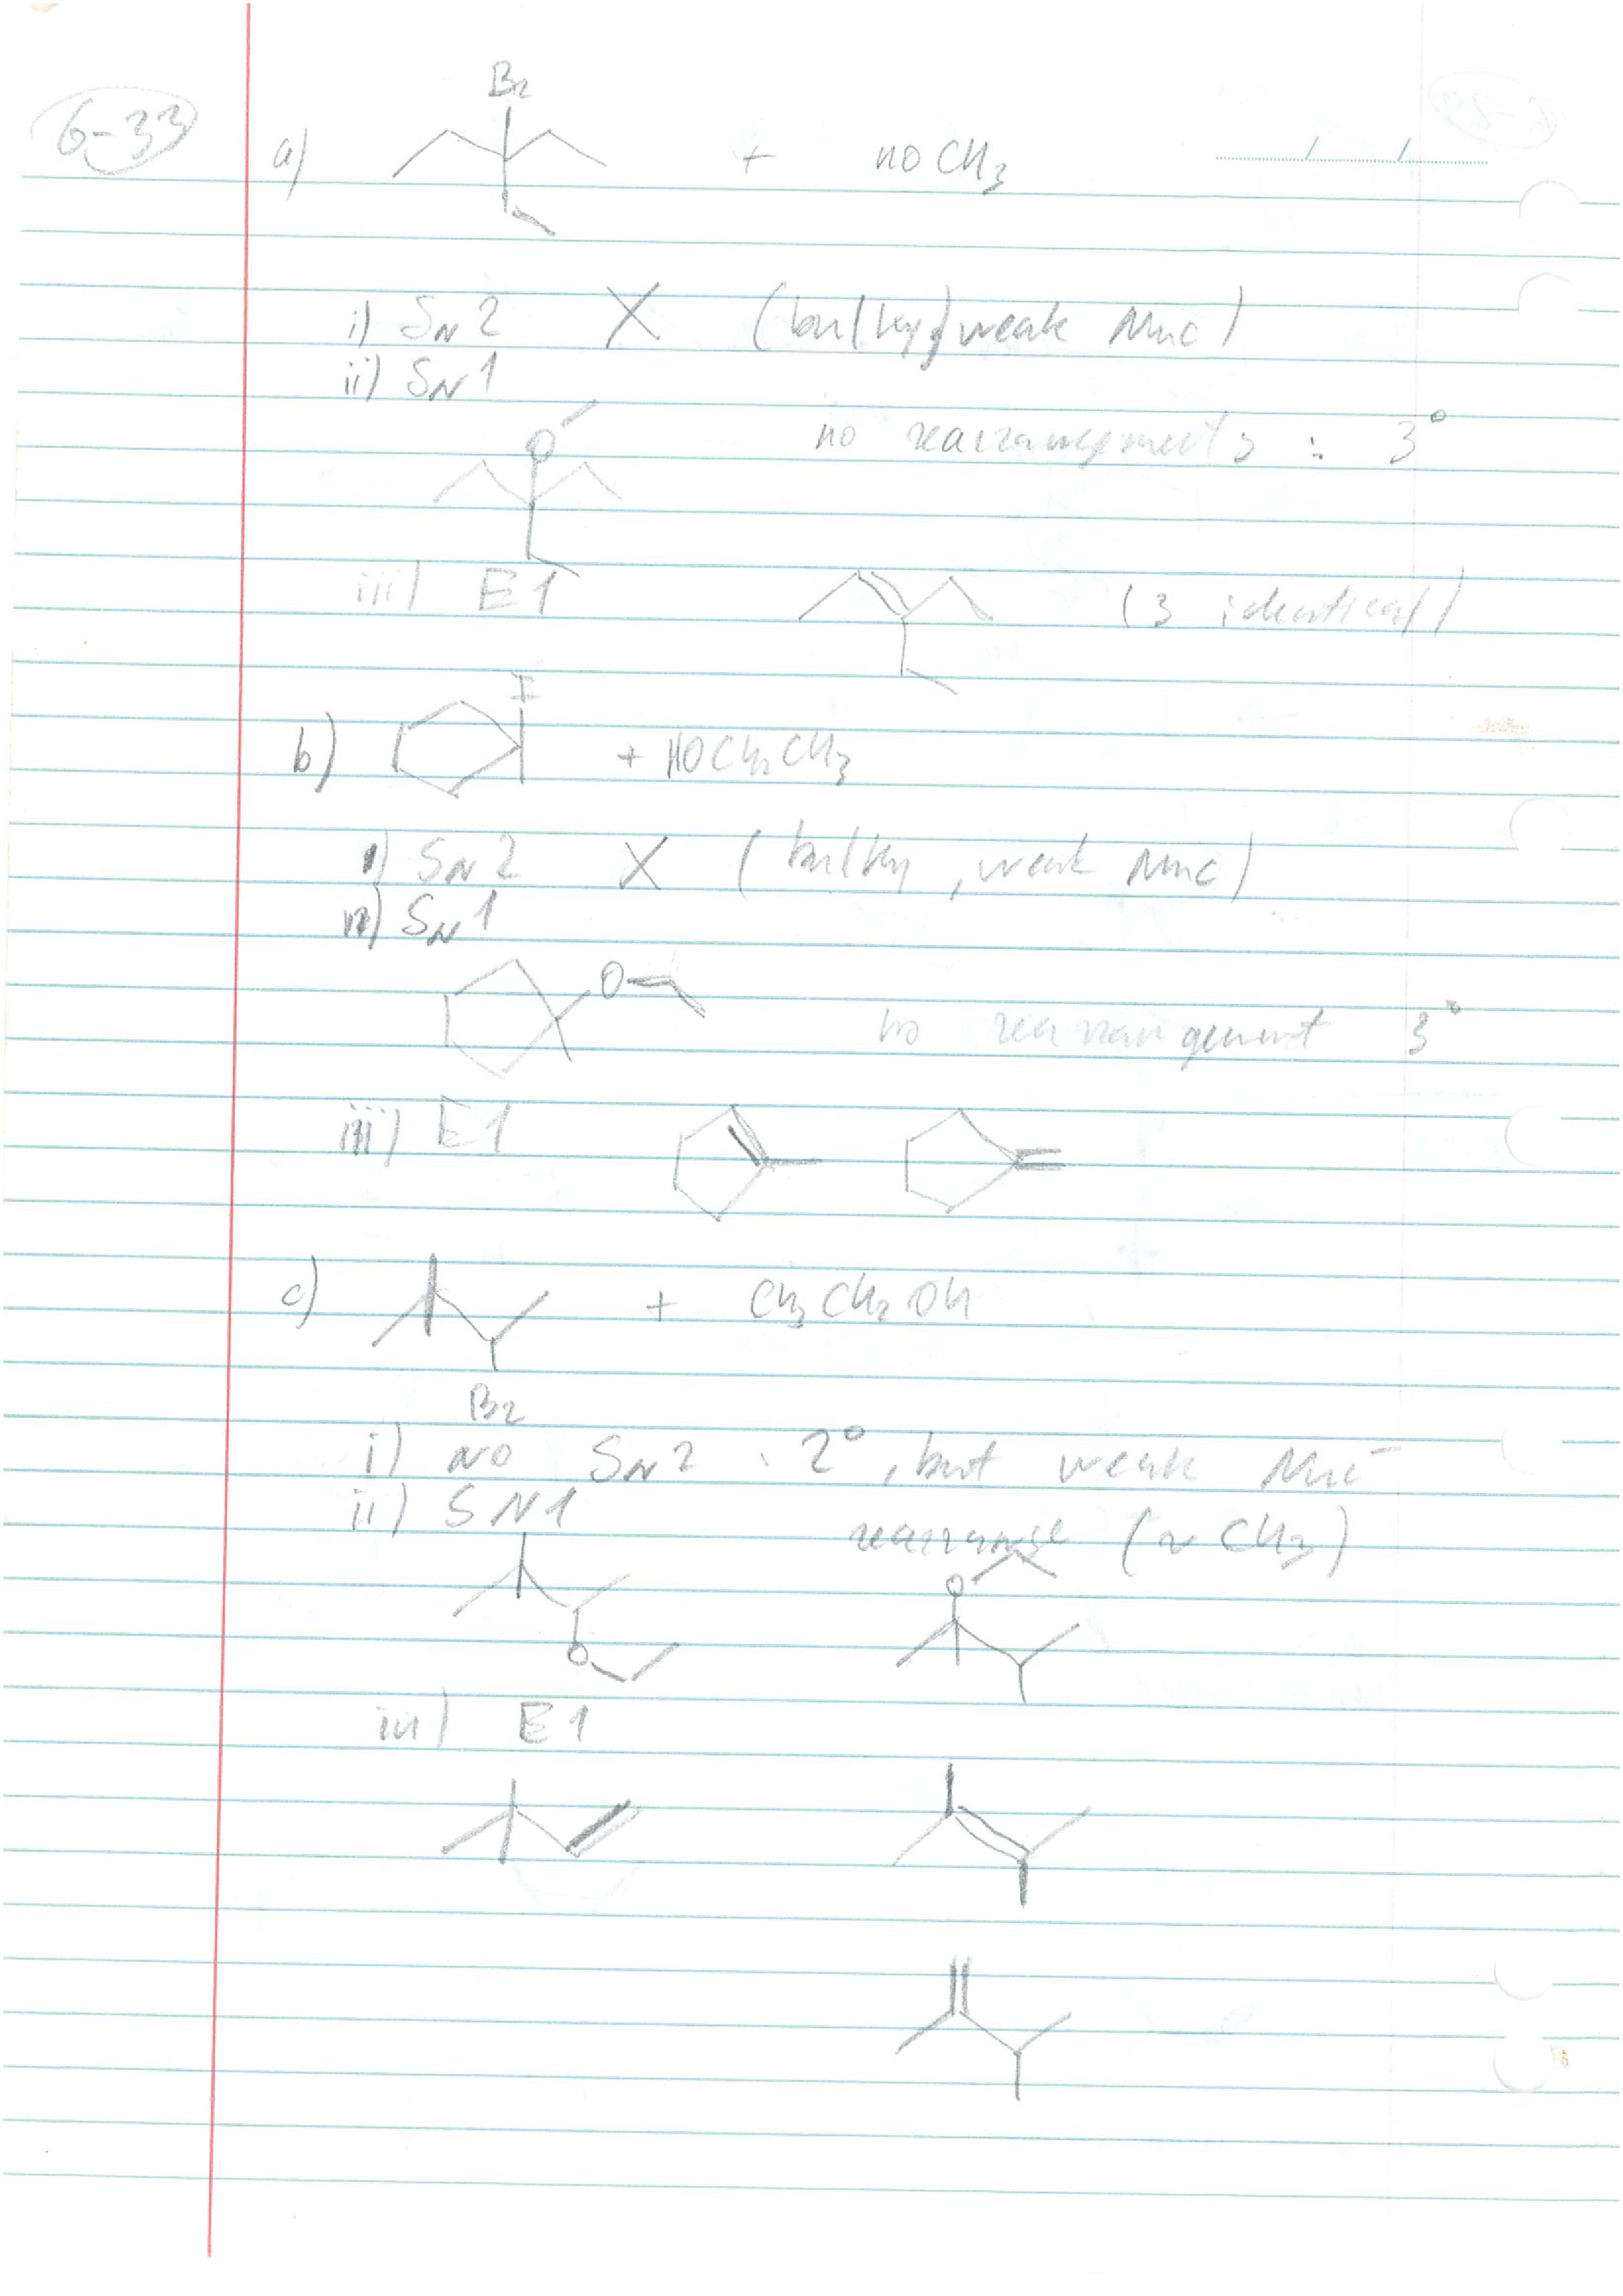 6-33
a) Br + HOCH3
i) SN2 X (bulky, weak Nuc)
ii) SN1
O no rearrangements : 3°
iii) E1 (3 identical)
I
b) + HOCH2CH3
i) SN2 X (bulky, weak Nuc)
ii) SN1
O no rearrangement 3°
iii) E1
c) + CH3CH2OH
Br
i) NO SN2 : 2°, but weak Nuc-
ii) SN1 rearrange (~ CH3)
O
O
iii) E1